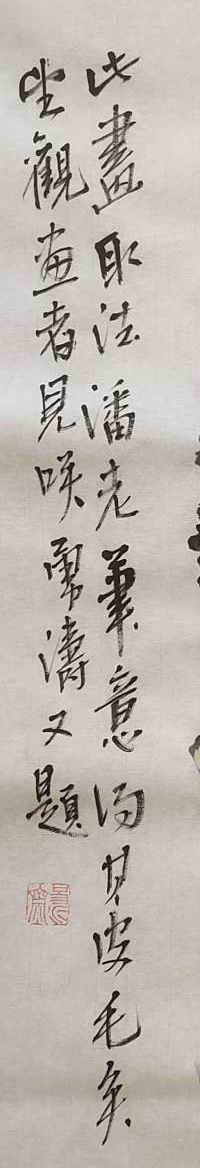 此畫取法潘老筆意得其皮毛矣
望觀畫者見咲雷濤又題